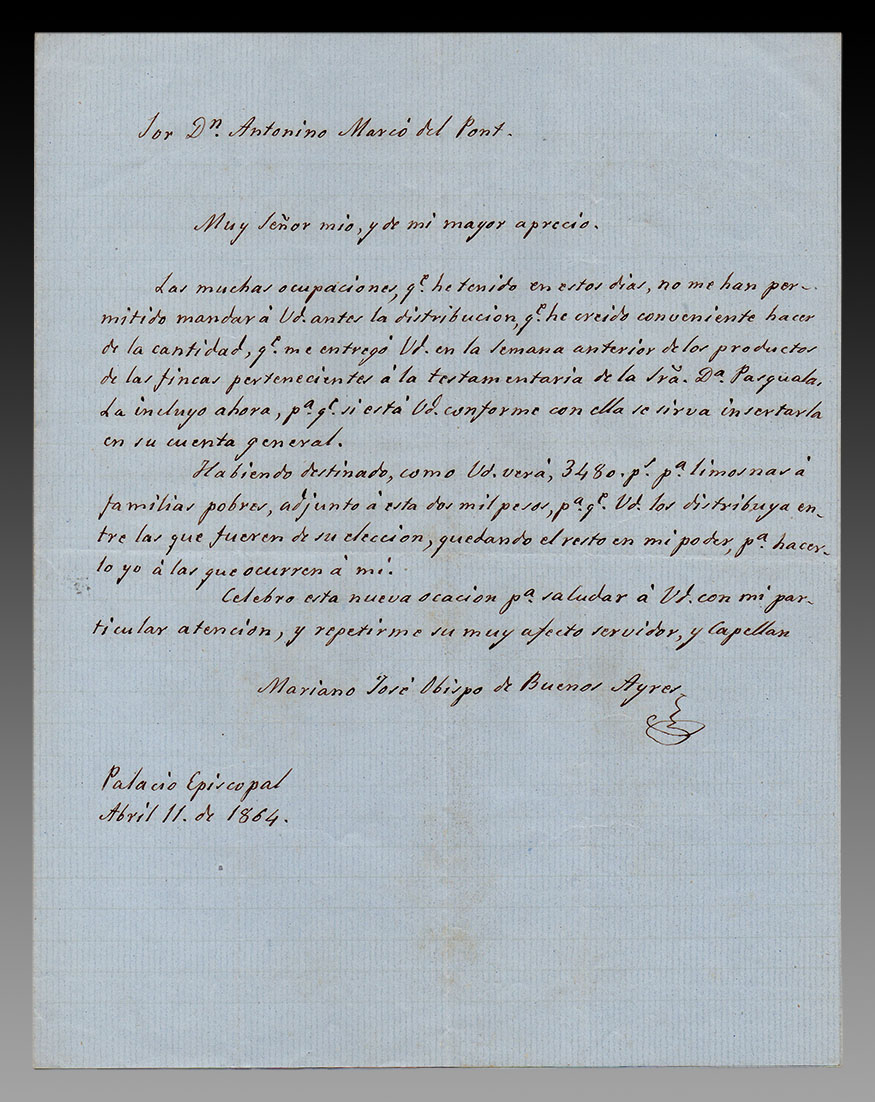 Sor Dn. Antonino Marcó del Pont.
Muy Señor mio, y de mi mayor aprecio.
Las muchas ocupaciones, qe. he tenido en estos dias, no me han per-
mitido mandar á Vd. antes la distribucion, qe. he creido conveniente hacer
de la cantidad, qe. me entregó Vd. en la semana anterior de los productos
de las fincas pertenecientes á la testamentaria de la Srã. Da. Pasquala.
La incluyo ahora, pa. qe. si está Vd. conforme con ella se sirva insertarla
en su cuenta general.
Habiendo destinado, como Vd. verá, 3480. ps. pa. limosnas á
familias pobres, adjunto á esta dos mil pesos, pa. qe. Vd. los distribuya en-
tre las que fueren de su eleccion, quedando el resto en mi poder, pa. hacer-
lo yo á las que ocurren á mi.
Celebro esta nueva ocacion pa. saludar á Vd. con mi par-
ticular atencion, y repetirme su muy afecto servidor, y Capellan
Mariano José Obispo de Buenos Ayres
Palacio Episcopal
Abril 11. de 1864.